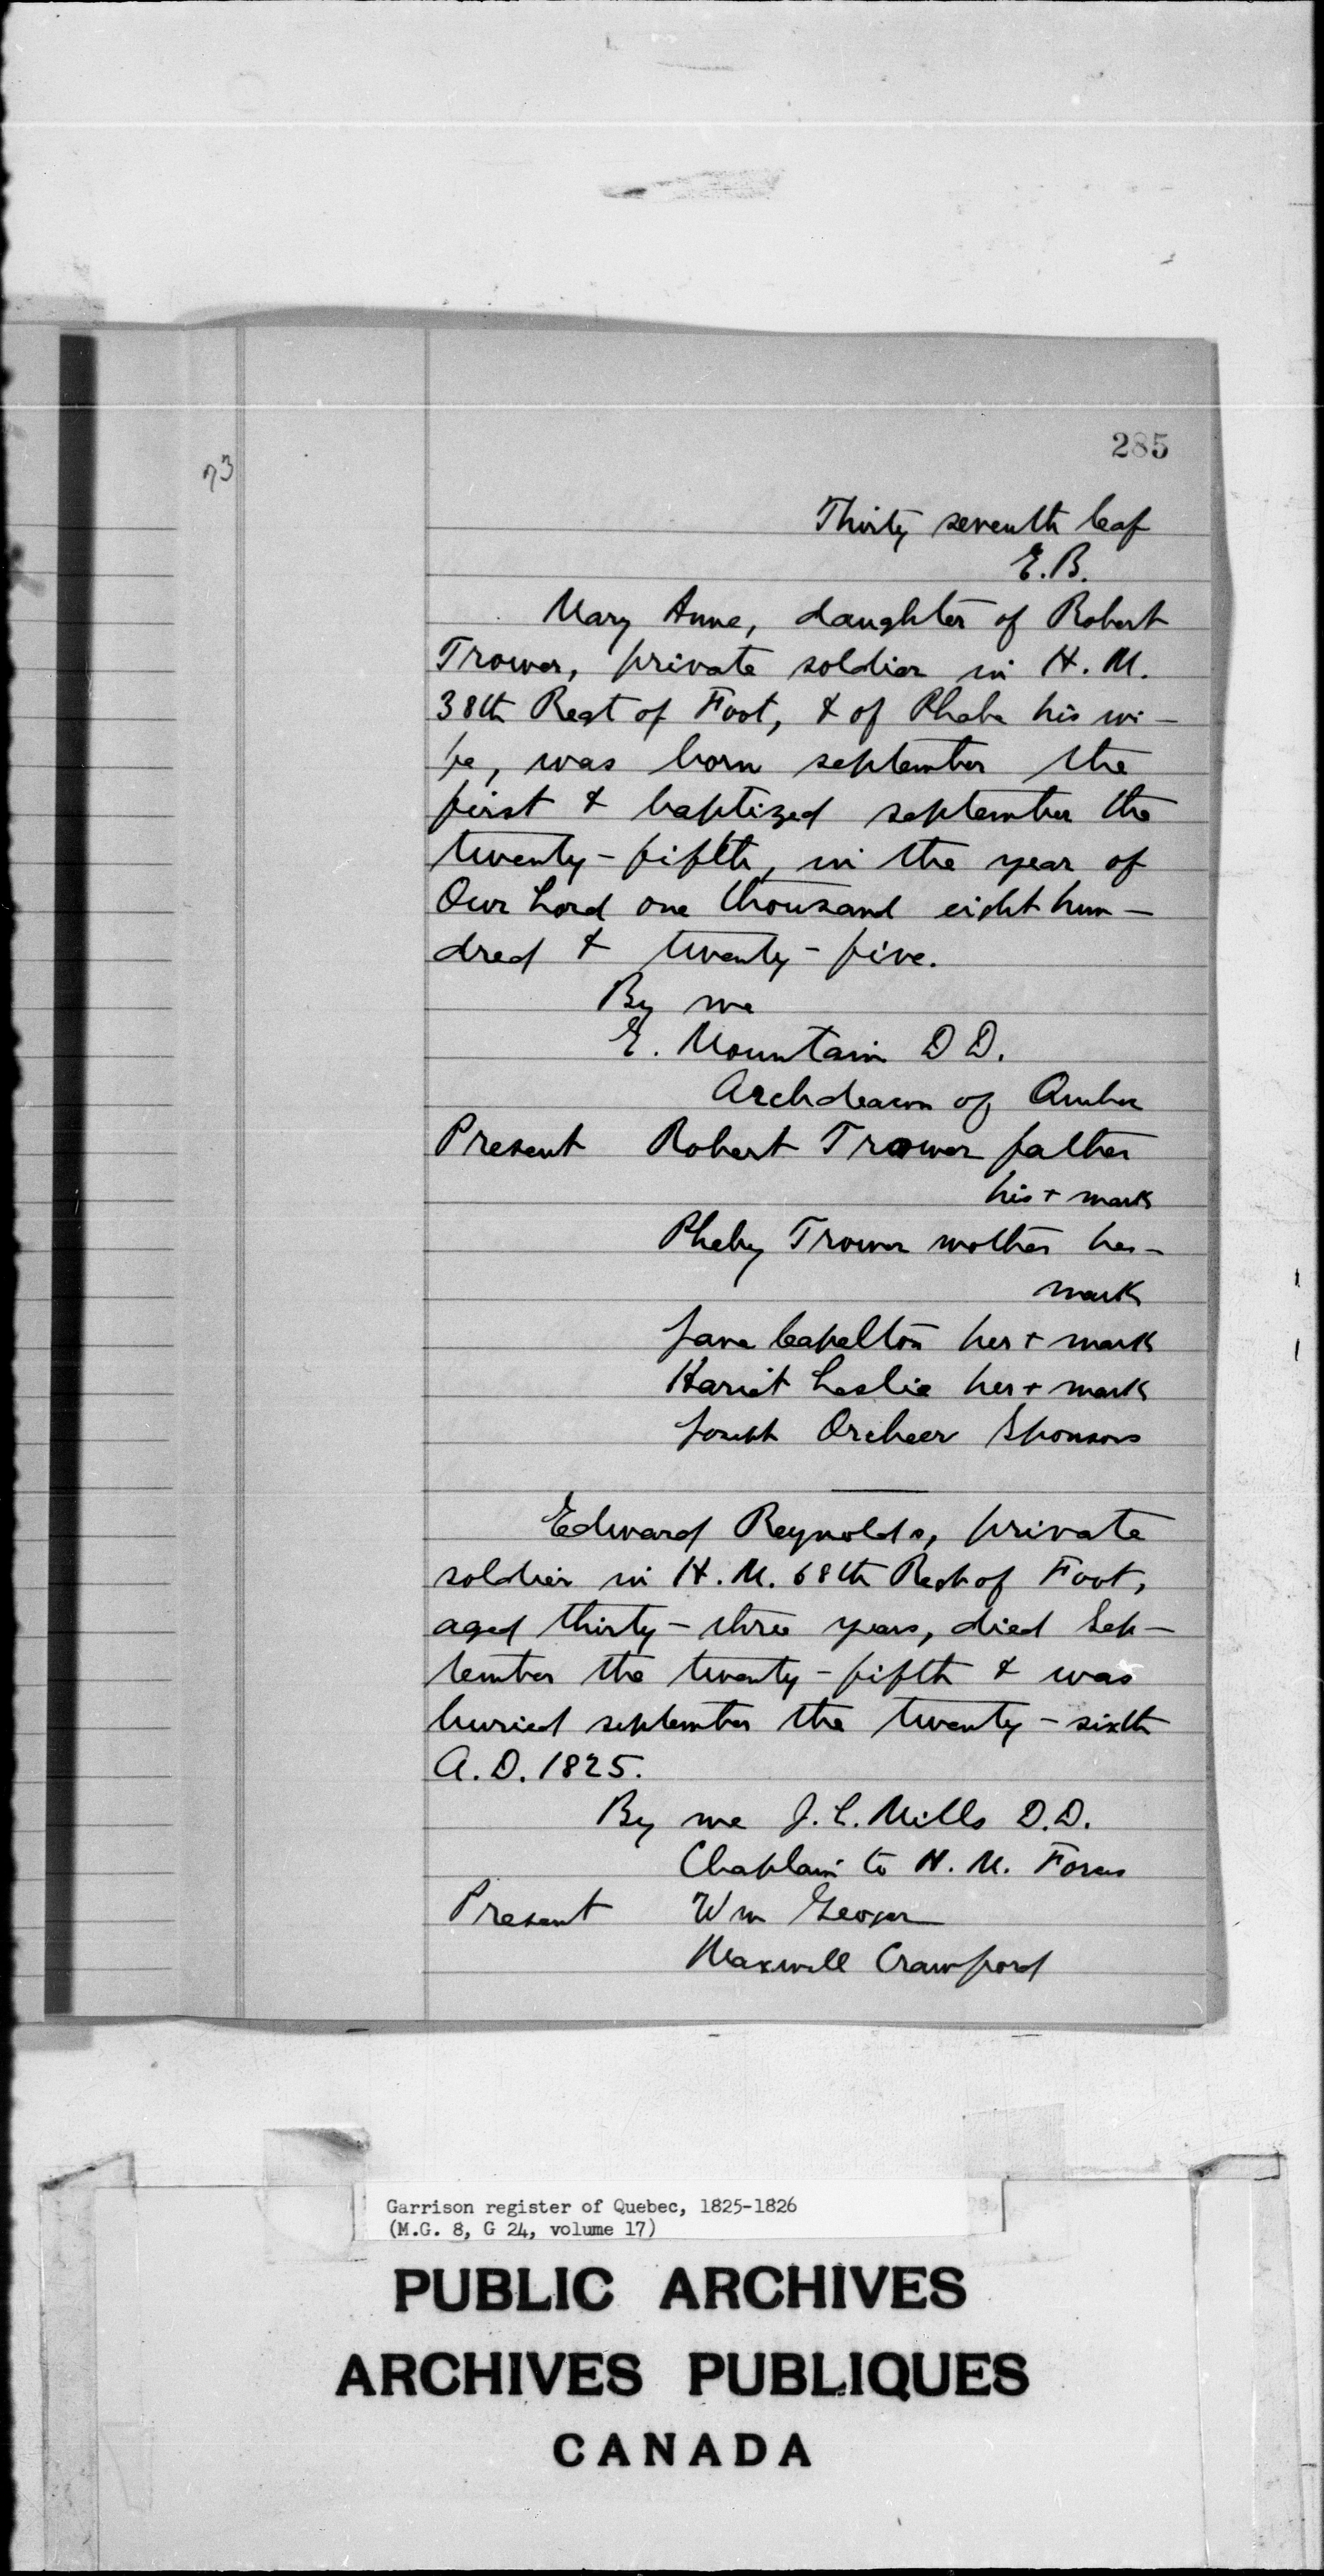 285
73
Thirty seventh leaf
E.B.
Mary Anne, daughter of Robert
Trower, private soldier in H. M.
38th Regt of Foot, & of Phebe his wi-
fe, was born september the
first & baptized september the
twenty-fifth, in the year of
Our Lord one thousand eight hun-
dred & twenty-five.
By me
E. Mountain D D.
Archdeacon of Quebec
Present Robert Trower father
his + mark
Pheby Trower mother her-
mark
Jane Capelton her + mark
Hariet Leslie her + mark
Joseph Orcheer Sponsors
Edward Reynolds, private
soldier in H. M. 68th Regt of Foot,
aged thirty-three years, died Sep-
tember the twenty-fifth & was
buried september the twenty-sixth
A. D. 1825.
By me J. L. Mills D.D.
Chaplain to H. M. Forces
Present Wm
Maxwell Crawford
Garrison register of Quebec, 1825-1826
(M.G. 8, G 24, volume 17)
PUBLIC ARCHIVES
ARCHIVES PUBLIQUES
CANADA